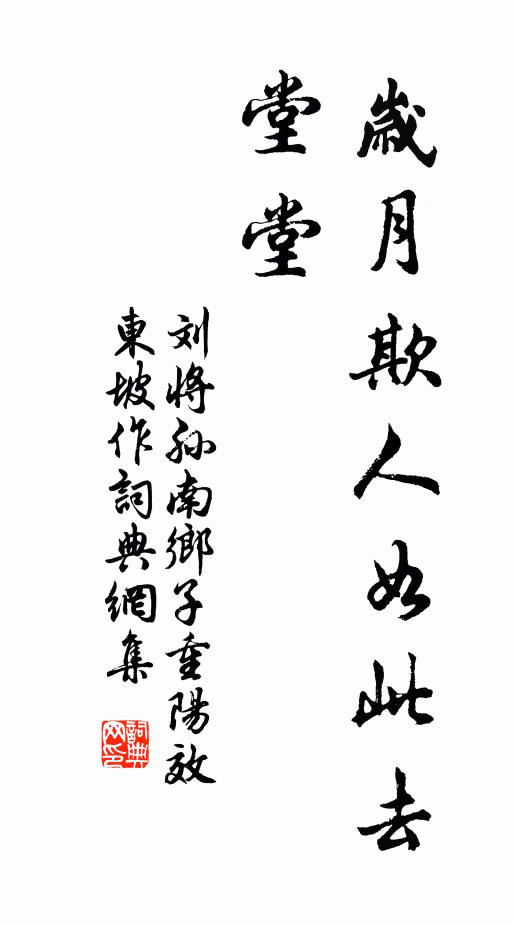 歲月欺人如此去
堂堂
刘將孙南鄉子重陽效
東坡作詞典網集
詞典
网印